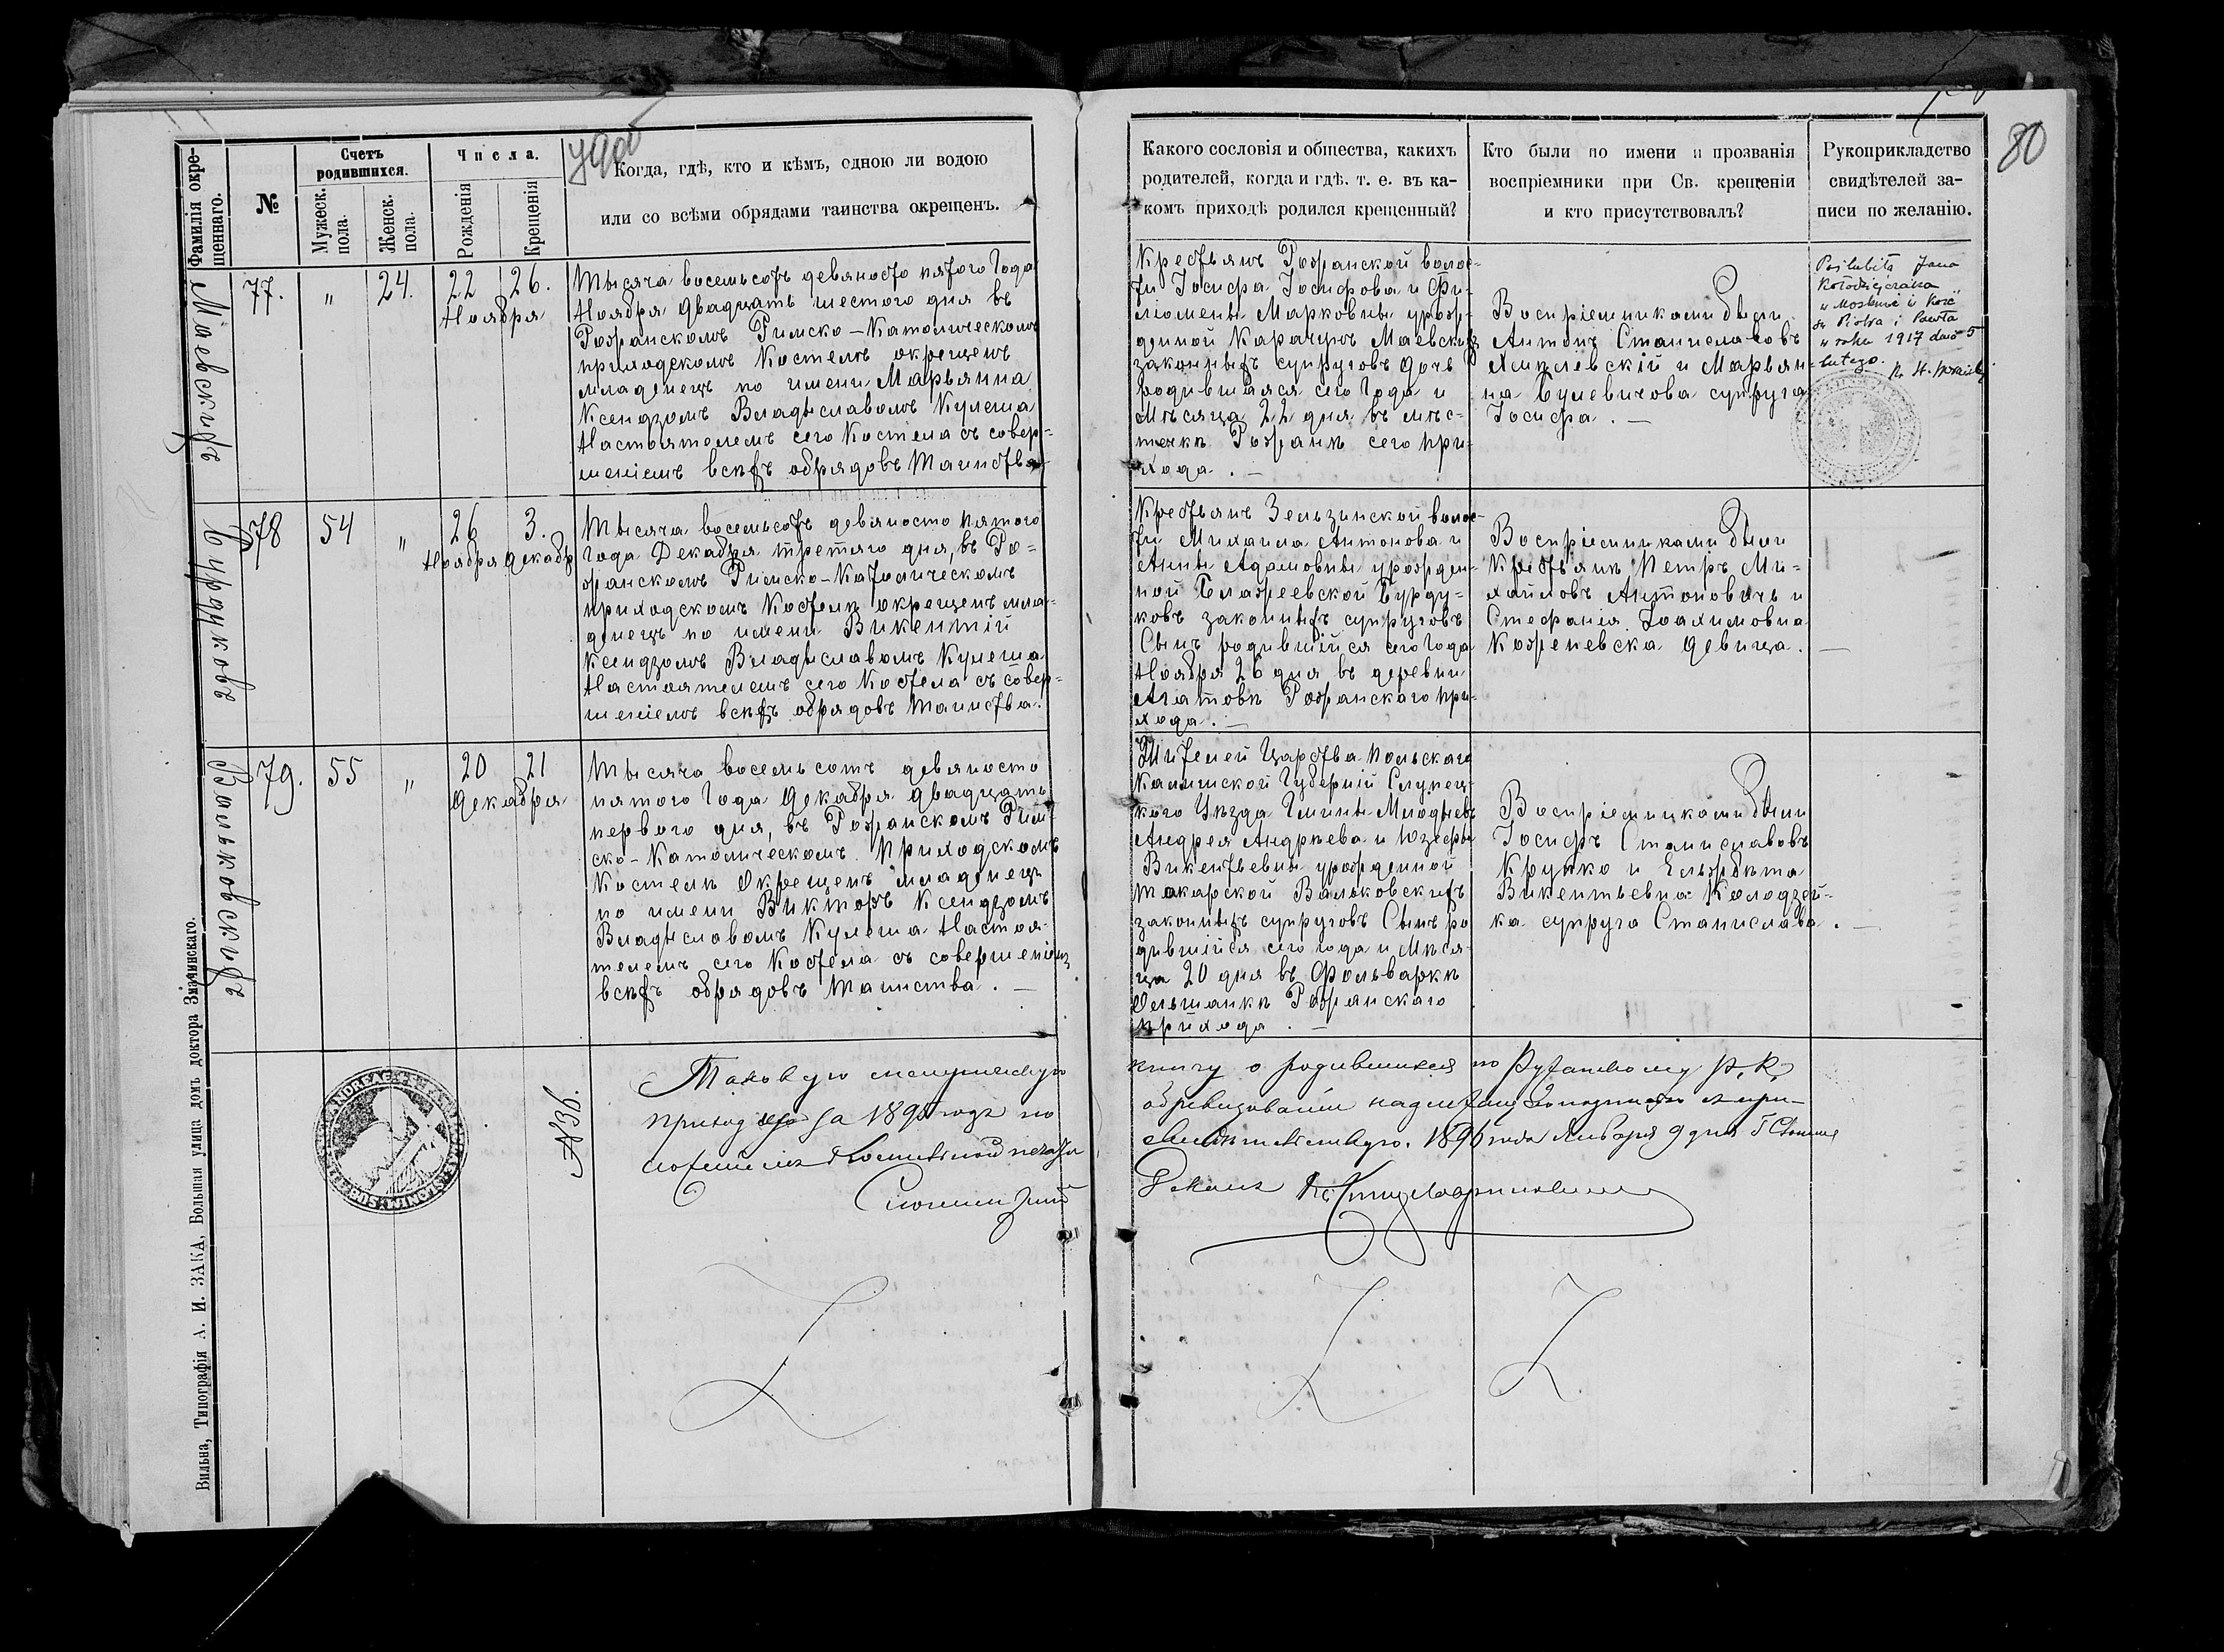 80
Фамилія окре-
щеннаго.
№
Счетъ
родившихся.
Мужеск.
пола.
Женск.
пола.
Числа.
Рожденія
Крещенія
Когда, гдѣ, кто и кѣмъ, одною ли водою
или со всѣми обрядами таинства окрещенъ.
Какого сословія и общества, какихъ
родителей, когда и гдѣ. т. е. въ ка-
комъ приходѣ родился крещенный?
Кто были по имени и прозванія
воспріемники при Св. крещеніи
и кто присутствовалъ?
Рукоприкладство
свидѣтелей за-
писи по желанію.
Маевскихъ
77.
"
24.
22
26.
Ноября
Тысяча восемьсотъ девяносто пятого Года
Ноября двадцать шестого дня въ
Рожанскомъ Римско-Католическомъ
приходскомъ Костелѣ окрещенъ
младенецъ по имени Марьянна
Ксендзомъ Владыславомъ Кулеша
Настоятелемъ сего Костела съ совер-
шеніемъ всѣхъ обрядовъ Таинства
Крестьянъ Рожанской волос-
ти Іосифа Іосифова и Фи-
ліомены Марковны урож-
денной Карачунъ Маевскихъ
законныхъ супруговъ дочь
родившаяся сего Года и
Мѣсяца 22 дня въ мѣс-
течкѣ Рожанѣ сего при-
хода. —
Воспріемниками были
Антонъ Станиславовъ
Хмѣлевскій и Марьян-
на Булевичова супруга
Іосифа. —
Poślubiła Jana
Kołodziejczaka
w Moskwie w Kośc.
św Piotra i Pawła
w roku 1917 dnia 5
lutego.
Бурдуковъ
78
54
"
26
3.
Ноября Декабр
Тысяча восемьсотъ девяносто пятого
Года Декабря третяго дня, въ Ро-
жанскомъ Римско-Католическомъ
приходскомъ Костелѣ окрещенъ мла-
денецъ по имени Викентій
Ксендзомъ Владыславомъ Кулеша
Настоятелемъ сего Костела съ совер-
шеніемъ всѣхъ обрядовъ Таинства.
Крестьянъ Зельзинской волос-
ти Михаила Антонова и
Анны Адамовны урожден-
ной Блажеевской Бурду-
ковъ законныхъ супруговъ
Сынъ родившійся сего Года
Ноября 26 дня въ деревни
Агатовѣ Рожанскаго при-
хода. —
Воспріемниками были
Крестьянѣ Петръ Ми-
хайловъ Антоновичъ и
Стефанія Іоахимовна
Корженевска девица. —
Вальковскихъ
79.
55
"
20
21
Декабря
Тысяча восемьсотъ девяносто
пятого Года Декабря двадцать
первого дня, въ Рожанскомъ Рим-
ско-Католическомъ Приходскомъ
Костелѣ Окрещенъ младенецъ
по имени Викторъ Ксендзомъ
Владыславомъ Кулеша Настоя-
телемъ сего Костела съ совершеніемъ
всѣхъ обрядовъ Таинства. —
Жителей Царства Польскаго
Калишской Губерніи Слупец-
кого Уѣзда Гмины Млодоевъ
Андрея Андрѣева и Юзефы
Викентьевны урожденной
Токарской Вальковскихъ
законныхъ супруговъ Сынъ ро
дившійся сего года и Мѣся-
ца 20 дня въ Фольваркѣ
Ольшанкѣ Рожанскаго
прихода. —
Воспріемниками были
Іосифъ Станиславовъ
Крупко и Ельжбѣта
Викентьевна Колодзей-
ка супруга Станислава. —
№36.
Таковую метрическую книгу о родившихся по Ружанскому Р. К.
приходу за 1895 годъ по
1896 года Января 9 дня
Слонимскій
Деканъ
Вильна, Типографія А. И. ЗАКА, Большая улица домъ доктора Зманинскаго.